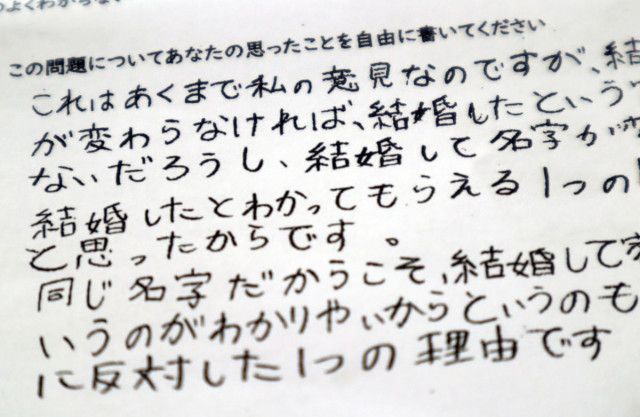 よくわからない
この問題についてあなたの思ったことを自由に書いてください
これはあくまで私の意見なのですが、結
が変わらなければ、結婚したという
ないだろうし、結婚して名字が変
結婚したとわかってもらえる1つの
と思ったからです。
同じ名字だからこそ、結婚して家
いうのがわかりやいからというのも
に反対した1つの理由です